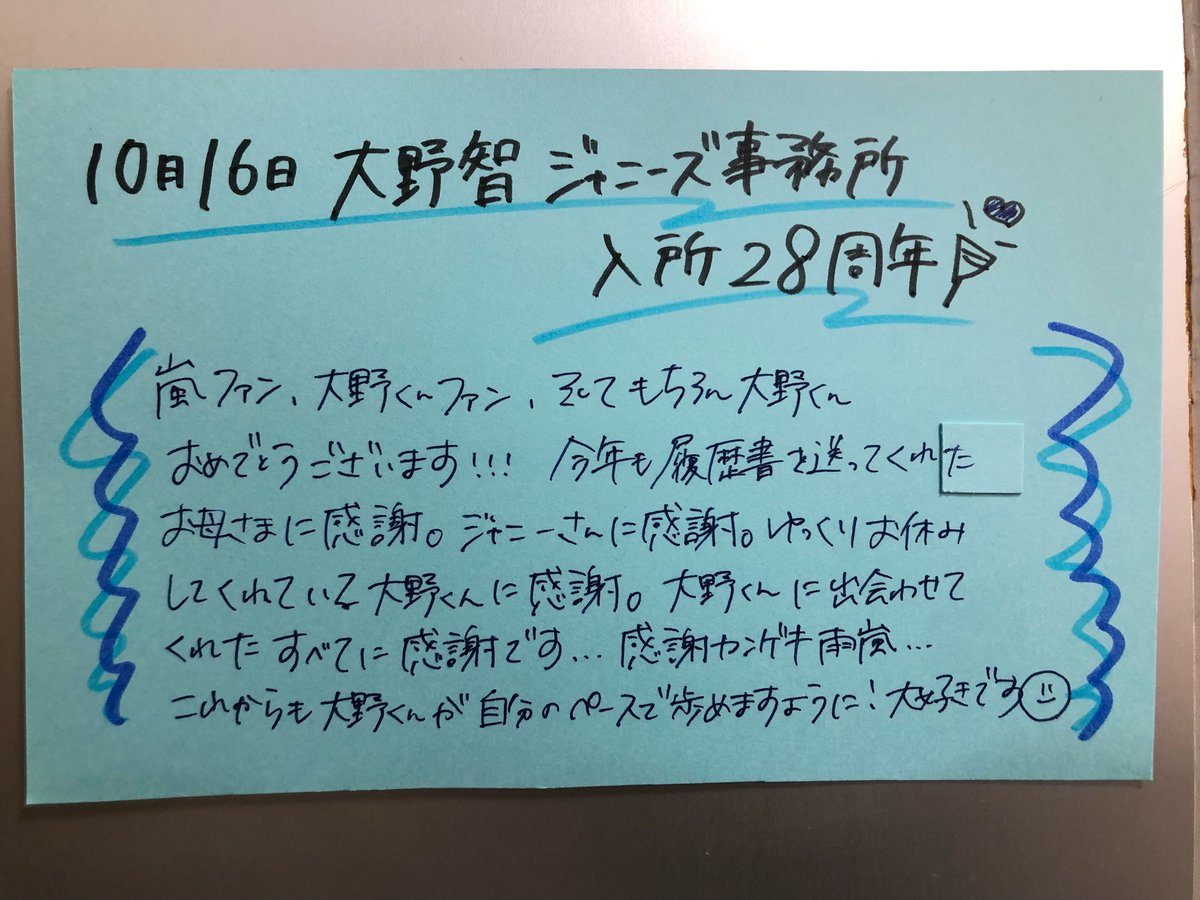 10月16日 大野智 ジャニーズ事務所
入所28周年
嵐ファン、大野くんファン、そしてもちろん大野くん
おめでとうございます!!! 今年も履歴書を送ってくれた
お母さまに感謝。ジャニーさんに感謝。ゆっくりお休み
してくれている大野くんに感謝。大野くんに出会わせて
くれたすべてに感謝です…感謝カンゲキ雨嵐…
これからも大野くんが自分のペースで歩めますように!大好きです